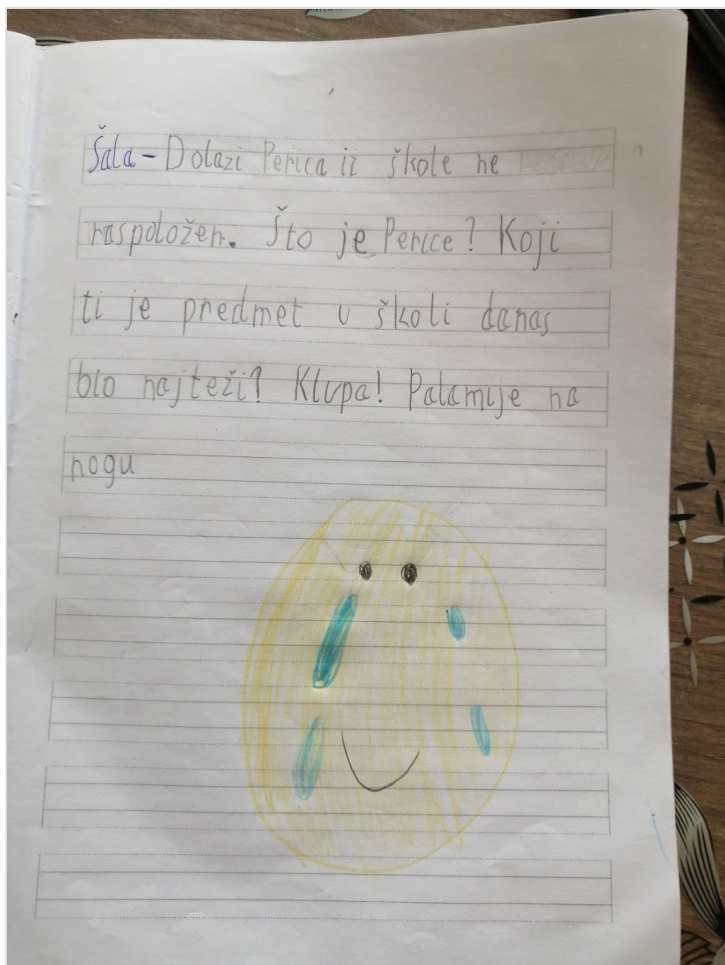 Šala - Dolazi Perica iz škole ne
raspoložen. Što je Perice? Koji
ti je predmet u školi danas
bio najteži? Klupa! Palamije na
nogu